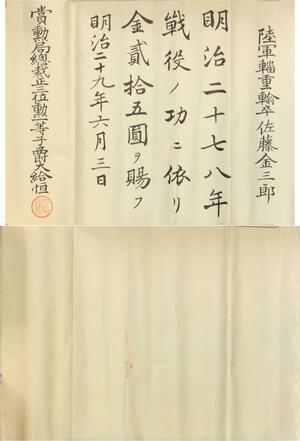 陸軍輜重輸卒佐藤金三郎
明治二十七八年
戰役ノ功ニ依リ
金貳拾五圓ヲ賜フ
明治二十九年六月三日
賞勳局總裁正三位勳一等子爵大給恒